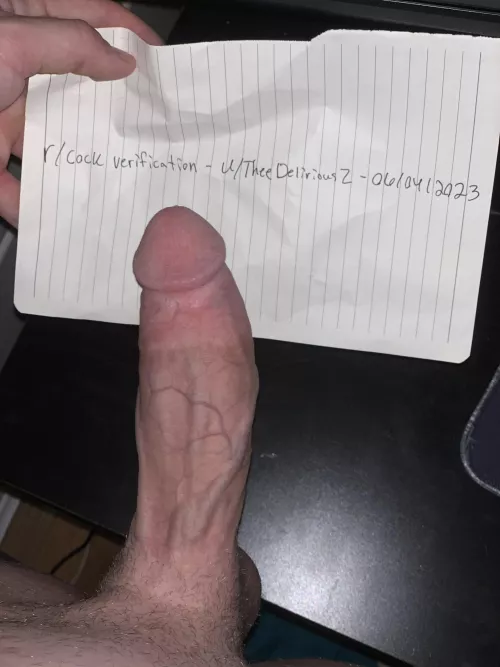 r/cock verification - u/TheeDeliriousZ - 06/04/2023